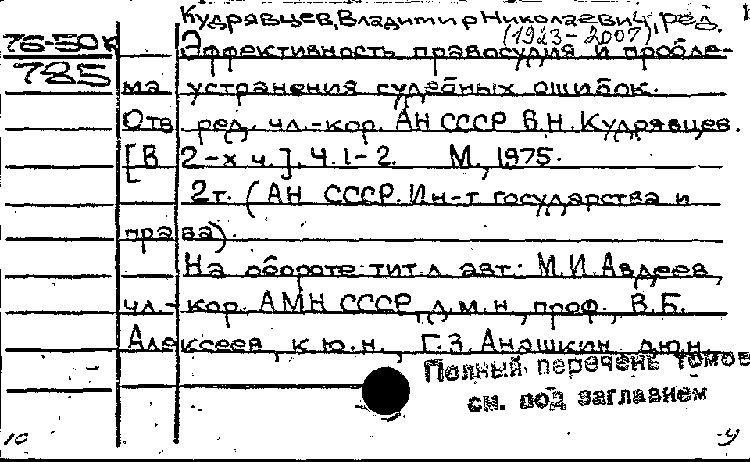 Кудрявцев, Владимир Николаевич, ред.
(1923-2007)
76-50к Эффективность правосудия и пробле-
785
ма устранения судебных ошибок.
Отв. ред. чл.-кор. АН СССР В.Н. Кудрявцев.
[В 2-х ч.]. Ч. 1-2. М., 1975.
2т. (АН СССР. Ин-т государства и
права).
На обороте тит. л. авт.: М.И. Авдеев,
чл.-кор. АМН СССР, д.м.н., проф., В.Б.
Алексеев, к.ю.н., Г.З. Анашкин, д.ю.н.
Полный перечень томов
см. под заглавием
10